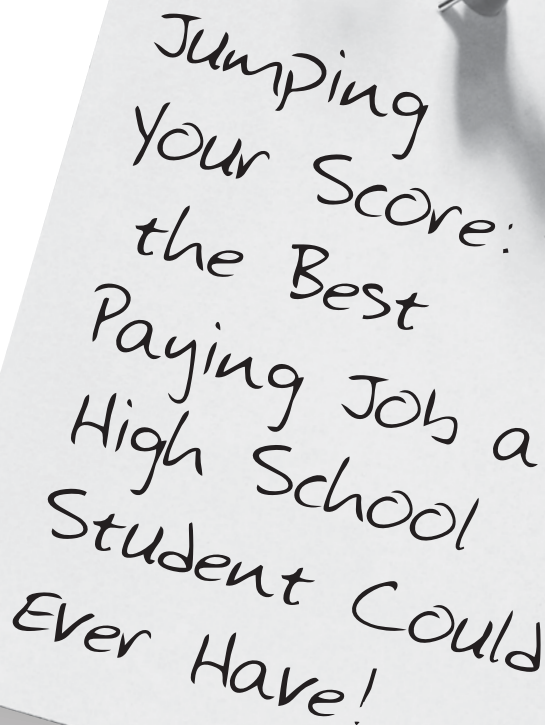 Jumping
Your Score:
the Best
Paying Job a
High School
Student Could
Ever Have!